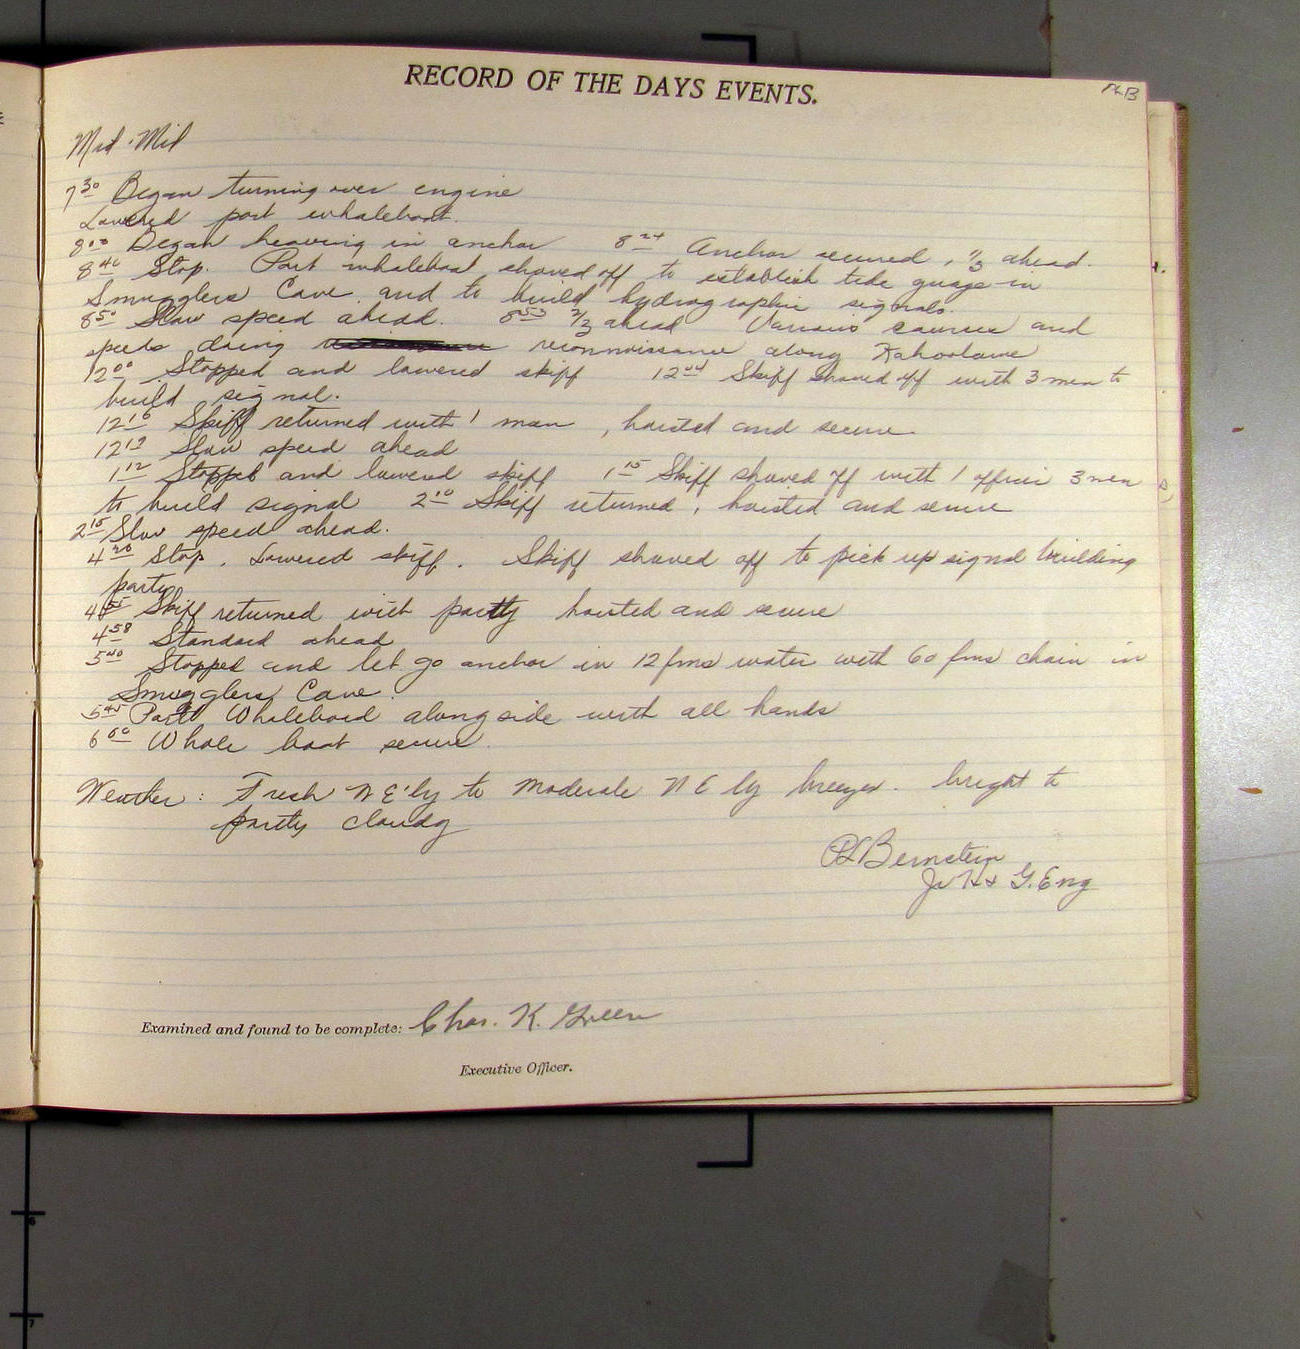 RECORD OF THE DAYS EVENTS.
PLB
Mid-Mid
7 30 Began turning over engine
Lowered port whaleboat.
8 10 Began heaving in anchor 8 24 Anchor secured, 1/3 ahead.
8 40 Stop. Port whaleboat shoved off to establish tide guage in
Smugglers Cove and to build hydrographic signals.
8 50 Slow speed ahead. 8 53 2/3 ahead Various courses and
speeds doing reconnoissance along Kahoolawe
12 00 Stopped and lowered skiff 12 04 Skiff shoved off with 3 men to
build signal.
12 16 Skiff returned with 1 man, hoisted and secure
12 19 Slow speed ahead
1 12 Stopped and lowered skiff 1 15 Skiff shoved off with 1 officer 3 men
to build signal 2 10 Skiff returned, hoisted and secure
2 15 Slow speed ahead.
4 20 Stop. Lowered skiff. Skiff shoved off to pick up signal building
party
4 55 Skiff returned with party hoisted and secure
4 58 Standard ahead
5 40 Stopped and let go anchor in 12 fms water with 60 fms chain in
Smugglers Cove.
5 45 Port Whaleboat alongside with all hands
6 00 Whale boat secure.
Weather: Fresh NE'ly to moderate NE'ly breezes. bright to
partly cloudy
PL Bernstein
Jr. H & G. Eng
Examined and found to be complete: Chas. K. Green
Executive Officer.
6
7